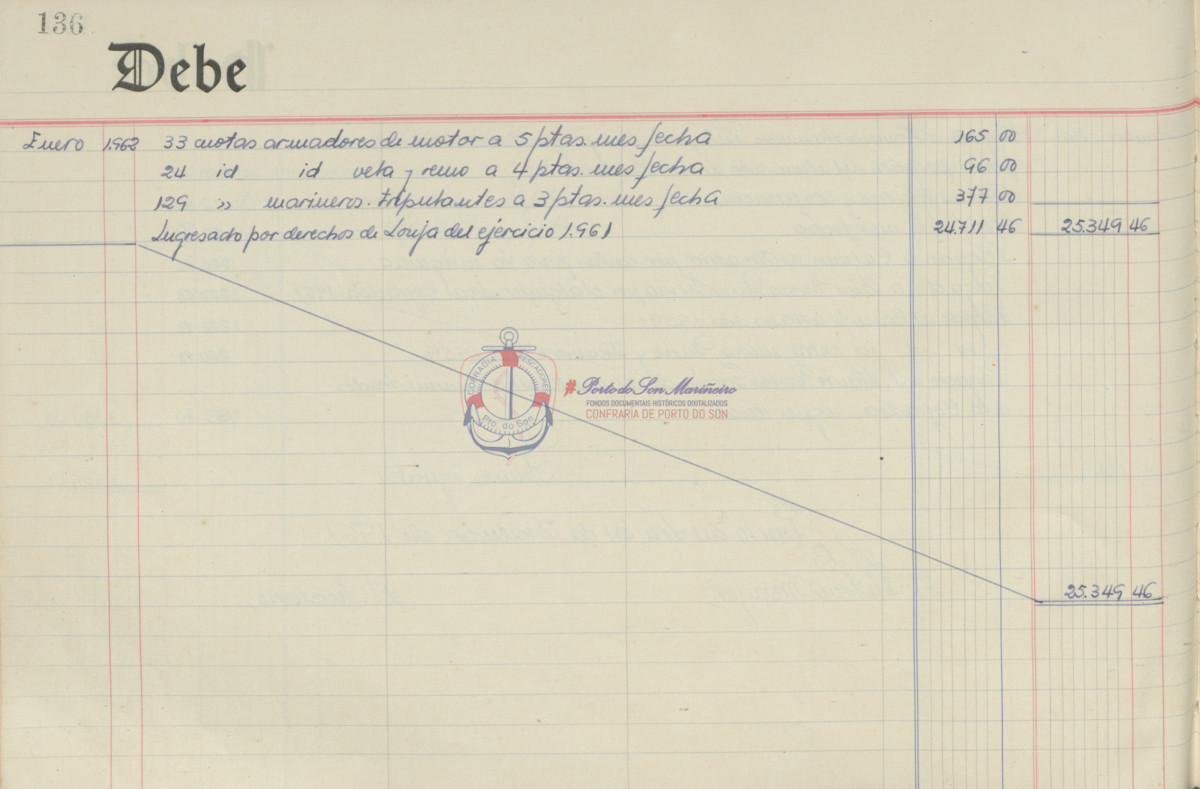 136
Debe
Enero 1.962 33 cuotas armadores de motor a 5 ptas. mes fecha 165 00
24 id id vela y remo a 4 ptas. mes fecha 96 00
129 » marineros tripulantes a 3 ptas. mes fecha 377 00
Ingresado por derechos de Lonja del ejercicio 1.961 24.711 46 25.349 46
COFRADIA PESCADORES
Pto. do Son
#Porto do Son Mariñeiro
FONDOS DOCUMENTAIS HISTÓRICOS DIXITALIZADOS
CONFRARÍA DE PORTO DO SON
25.349 46